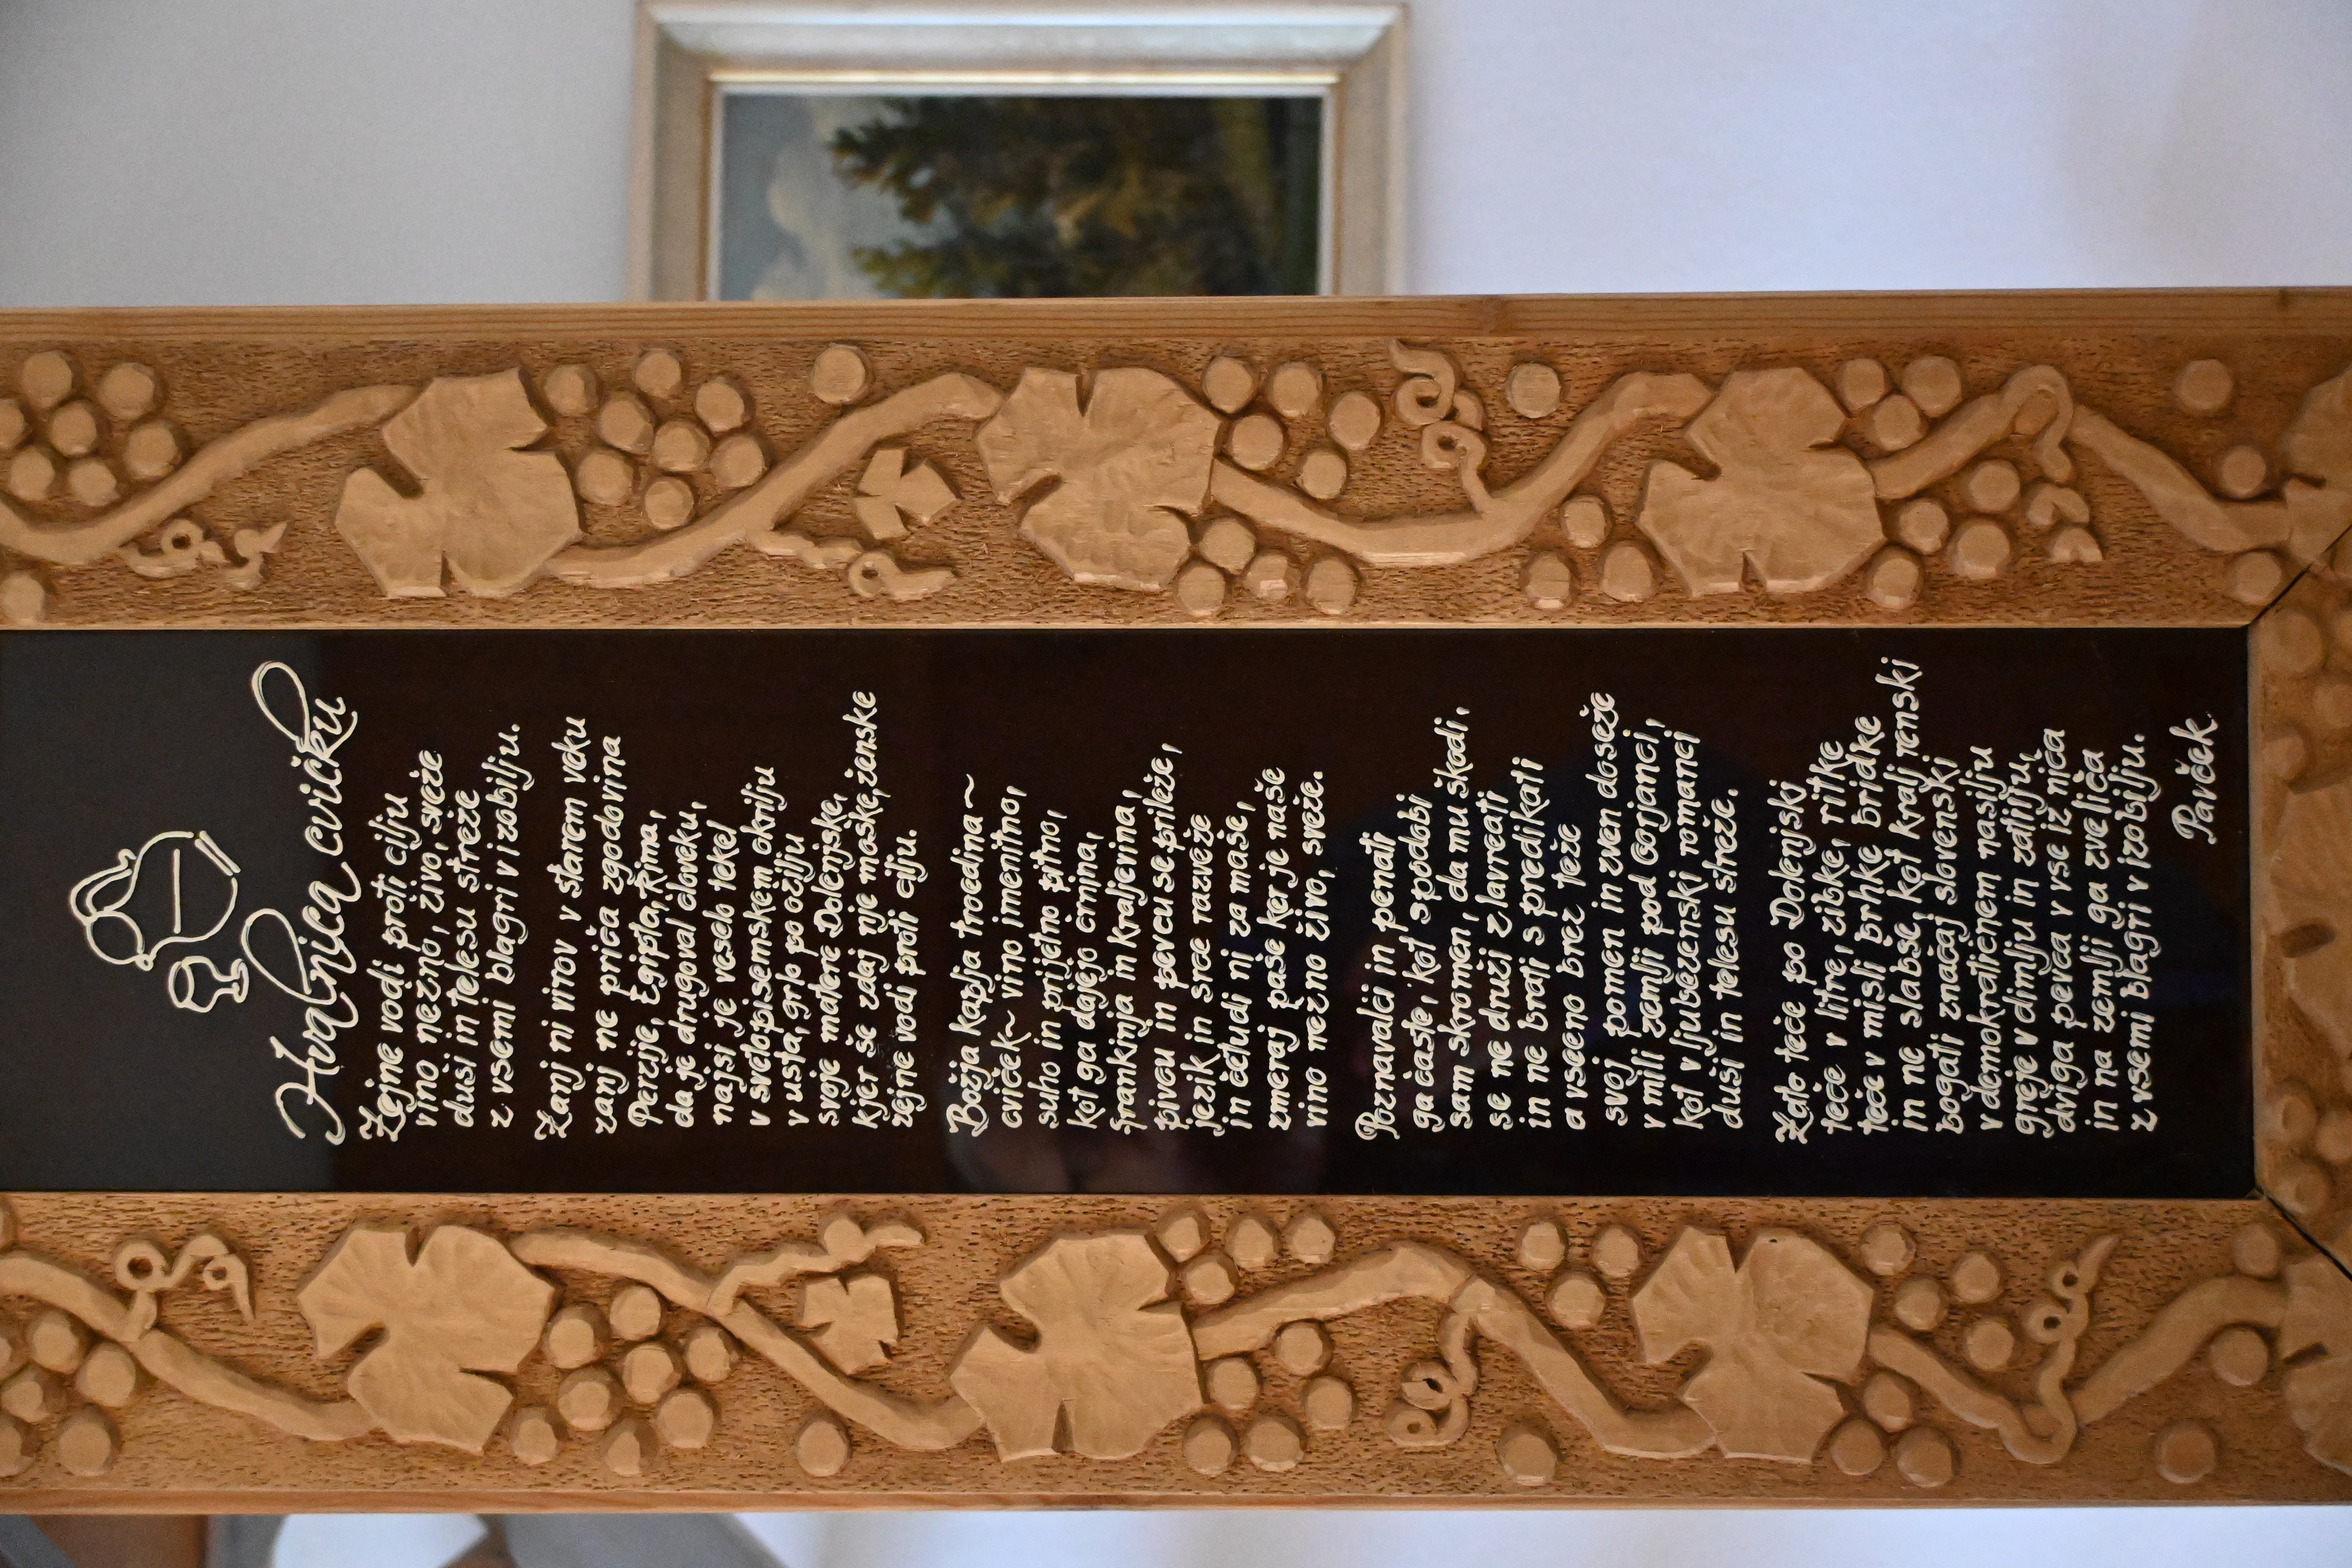 Hvalnica cvičku
Žejne vodi proti cilju
vino nežno, živo, sveže
duši in telesu streže
z vsemi blagri v izobilju.
Zanj ni virov v starem veku
zanj ne priča zgodovina
Perzije, Egipta, Rima,
da je drugoval človeku,
najsi je veselo tekel
v svetopisemskem okrilju
v usta, grlo po ožilju
svoje matere Dolenjske,
kjer še zdaj nje moške, ženske
žejne vodi proti cilju.
Božja kaplja troedina~
cviček~ vino imenitno,
suho in prijetno pitno,
kot ga dajejo črnina,
frankinja in kraljevina,
pivcu in pevcu se prileže,
jezik in srce razveže
in čeludi ni za maše,
zmeraj paše ker je naše
vino nežno živo, sveže.
Poznavalci in penati
ga časte, kot spodobi
sam skromen, da mu škodi,
se ne druži z lavreati
in ne brati s predikati
a vseeno brez teže
svoj pomen in zven doseže
v mili zemlji pod Gorjanci,
kot v ljubezenski romanci
duši in telesu streže.
Zato teče po Dolenjski
teče v litre, zibke, ritke
teče v misli brhke, bridke
in ne slabše kot kralj renski
bogati značaj slovenski
v demokratičnem nasilju
greje v dimlju in zatilju,
dviga pevca v vse iz niča
in na zemlji ga zveliča
z vsemi blagri v izobilju.
Pavček